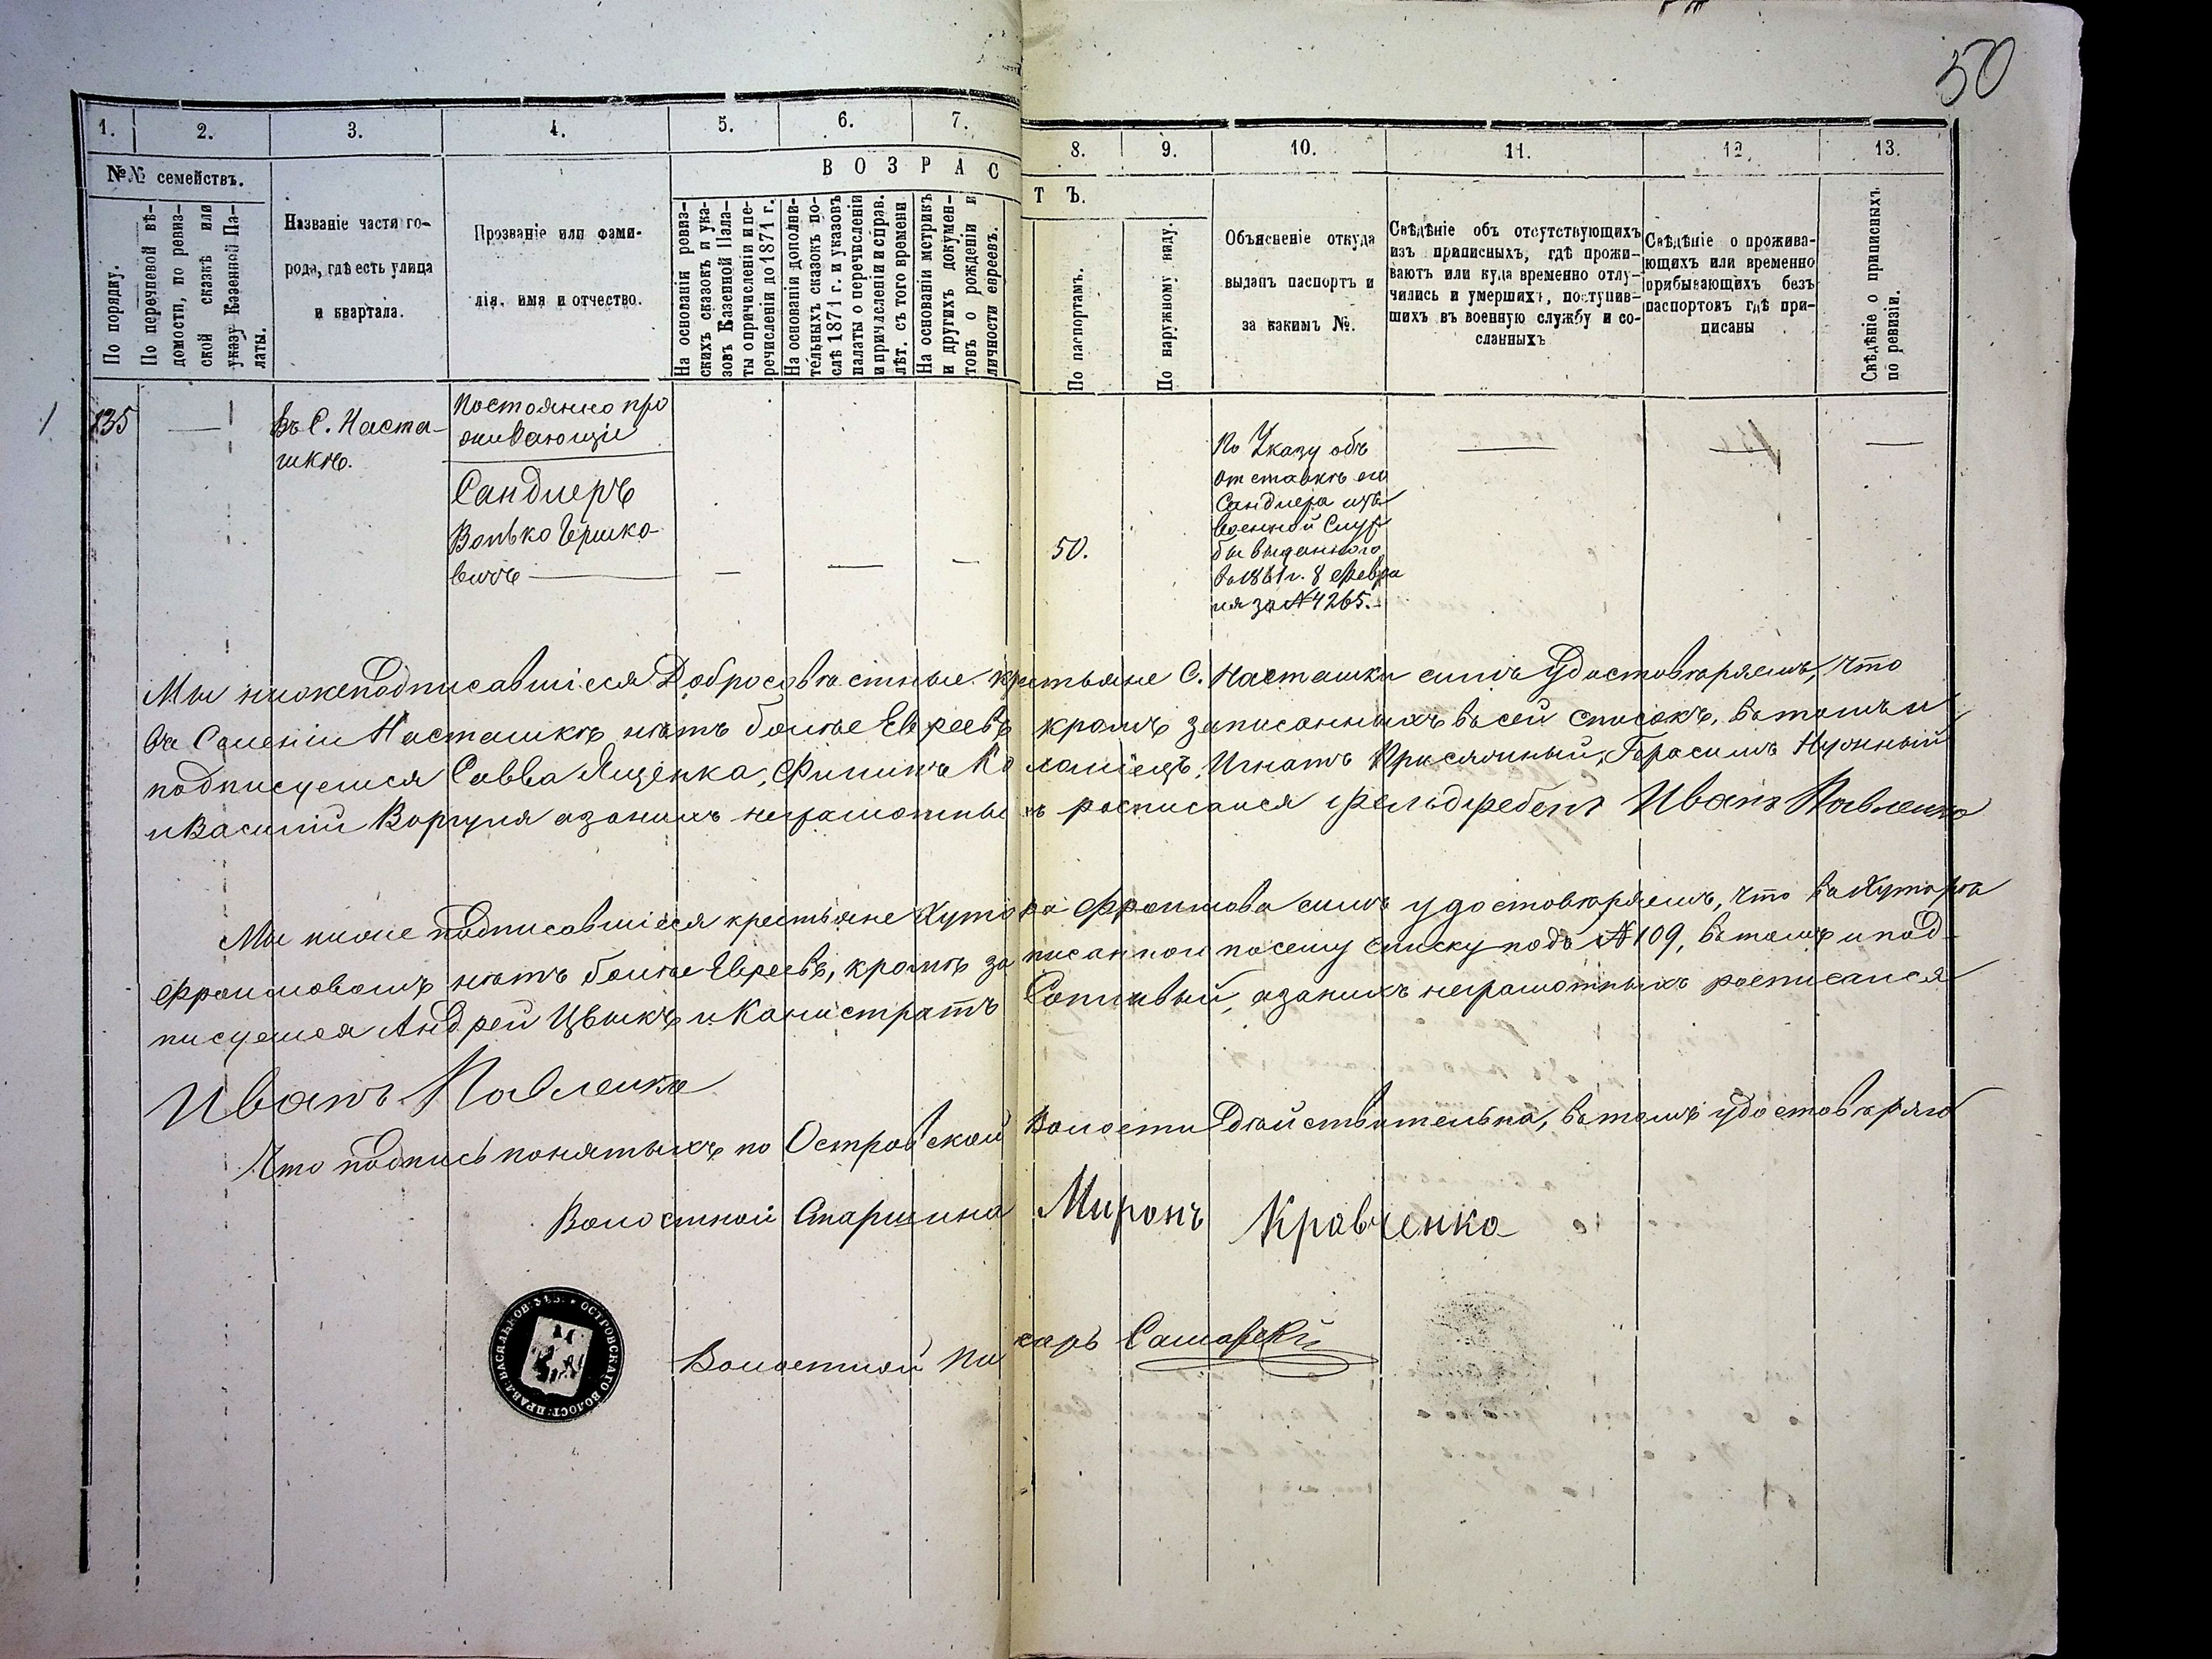 50
1. 2. 3. 4. 5. 6. 7. 8. 9. 10. 11. 12. 13.
№№ семействъ.
В О З Р А С Т Ъ.
По порядку.
По перечневой вѣ-
домости, по ревиз-
ской сказкѣ или
указу Казенной Па-
латы.
Названіе части го-
рода, гдѣ есть улица
и квартала.
Прозваніе или фами-
лія, имя и отчество.
На основаніи ревиз-
скихъ сказокъ и ука-
зовъ Казенной Пала-
ты о причисленіи и пе-
речисленіи до 1871 г.
На основаніи дополни-
тельныхъ сказокъ по-
слѣ 1871 г. и указовъ
палаты о перечисленіи
и причисленіи и справ.
лѣт. съ того времени
На основаніи метрикъ
и другихъ докумен-
товъ о рожденіи и
личности евреевъ.
По паспортамъ.
По наружному виду.
Объясненіе откуда
выданъ паспортъ и
за какимъ №.
Свѣдѣніе объ отсутствующихъ
изъ приписныхъ, гдѣ прожи-
ваютъ или куда временно отлу-
чились и умершихъ, поступив-
шихъ въ военную службу и со-
сланныхъ
Свѣдѣніе о прожива-
ющихъ или временно
прибывающихъ безъ
паспортовъ гдѣ при-
писаны
Свѣдѣніе о приписныхъ
по ревизіи.
1 135
Въ С. Наста-
шкѣ.
Постоянно про
живающіе
Сандлеръ
Волько Гершко-
вичъ
50.
По Указу объ
отставкѣ его
Сандлера изъ
военной Служ
бы выданного
въ 1861 г. 8 Февра
ля за № 4265.
Мы нижеподписавшіеся Добросовѣстные крестьяне С. Насташки симъ Удостовѣряемъ, что
въ Селеніи Насташкѣ нѣтъ болѣе Евреевъ кромѣ записанныхъ въ сей списокъ, въ томъ и
подписуемся Савва Ященка, Филипъ Коломіецъ, Игнатъ Присяжный, Герасимъ Нужный
и Василій Варгуля а за нихъ неграмотныхъ росписался Фельдфебель Иванъ Павленко
Мы ниже подписавшіеся крестьяне Хутора Фроимова симъ удостовѣряемъ, что въ Хуторѣ
Фроимовомъ нѣтъ болѣе Евреевъ, кромѣ записанного по сему списку подъ № 109, въ томъ и под-
писуемся Андрей Цвыкъ и Калистратъ а за нихъ неграмотныхъ росписался
Иванъ Павленко
Что подпись понятыхъ по Островской Волости Дѣйствительна, въ томъ удостовѣряю
Волостной Старшина Миронъ Кравченко
Волостной Писарь Самарскій
ВАСИЛЬКОВ: УѢЗ: ОСТРОВСКАГО ВОЛОСТ: ПРАВЛ: